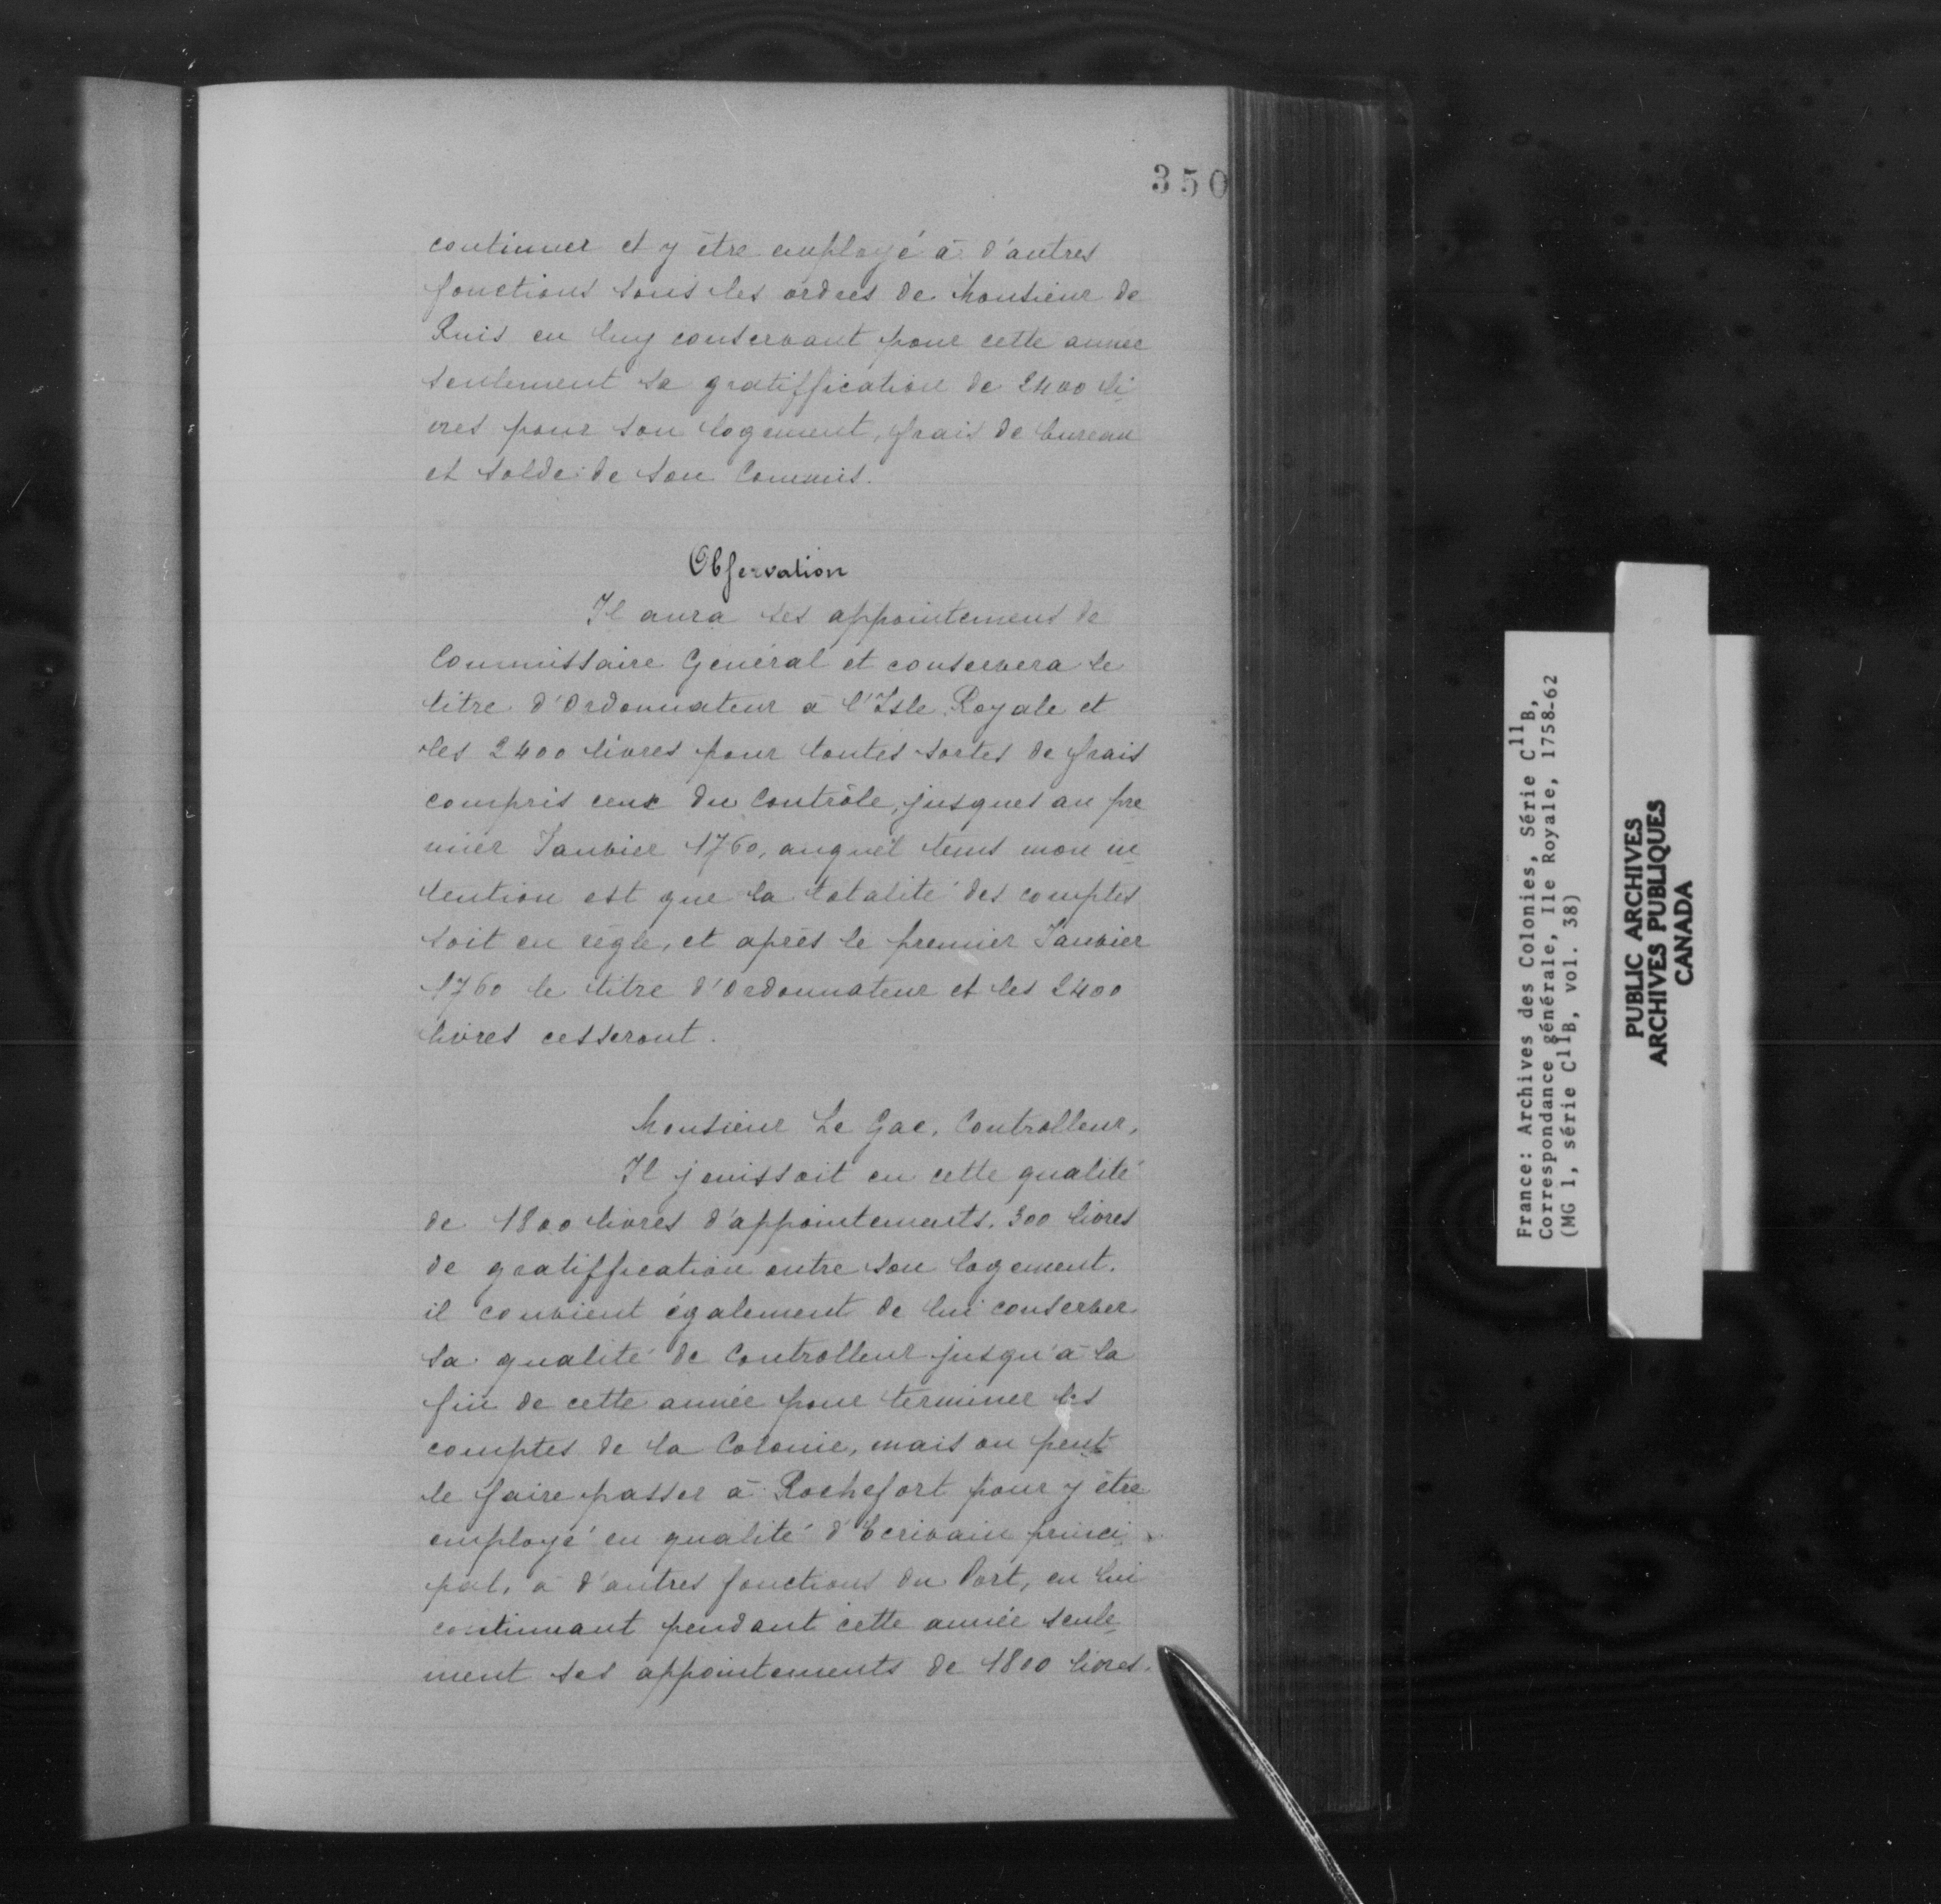 350
continuer et y être employé à d'autres
fonctions sous les ordres de Monsieur de
Ruis en luy conservant pour cette année
seulement sa gratiffication de 2400 li
vres pour son logement, frais de bureau
et solde de son Commis.
Observation
Il aura ses appointemens de
Commissaire Général et conservera le
titre d'Ordonnateur à l'Isle Royale et
les 2400 livres pour toutes sortes de frais
compris ceux du Contrôle, jusques au pre
mier Janvier 1760, auquel tems mon in
tention est que la totalité des comptes
soit en règle, et après le premier Janvier
1760 le titre d'Ordonnateur et les 2400
livres cesseront.
Monsieur Le Gac, Controlleur,
Il jouissoit en cette qualité
de 1800 livres d'appointements, 300 livres
de gratiffication outre son logement.
il convient également de lui conserver
sa qualité de Controlleur jusqu'à la
fin de cette année pour terminer les
comptes de la Colonie, mais on peut
le faire passer à Rochefort pour y être
employé en qualité d'Ecrivain princi
pal, à d'autres fonctions du Port, en lui
continuant pendant cette année seule
ment ses appointements de 1800 livres.
France: Archives des Colonies, Série C11B,
Correspondance générale, Ile Royale, 1758-62
(MG 1, série C11B, vol. 38)
PUBLIC ARCHIVES
ARCHIVES PUBLIQUES
CANADA